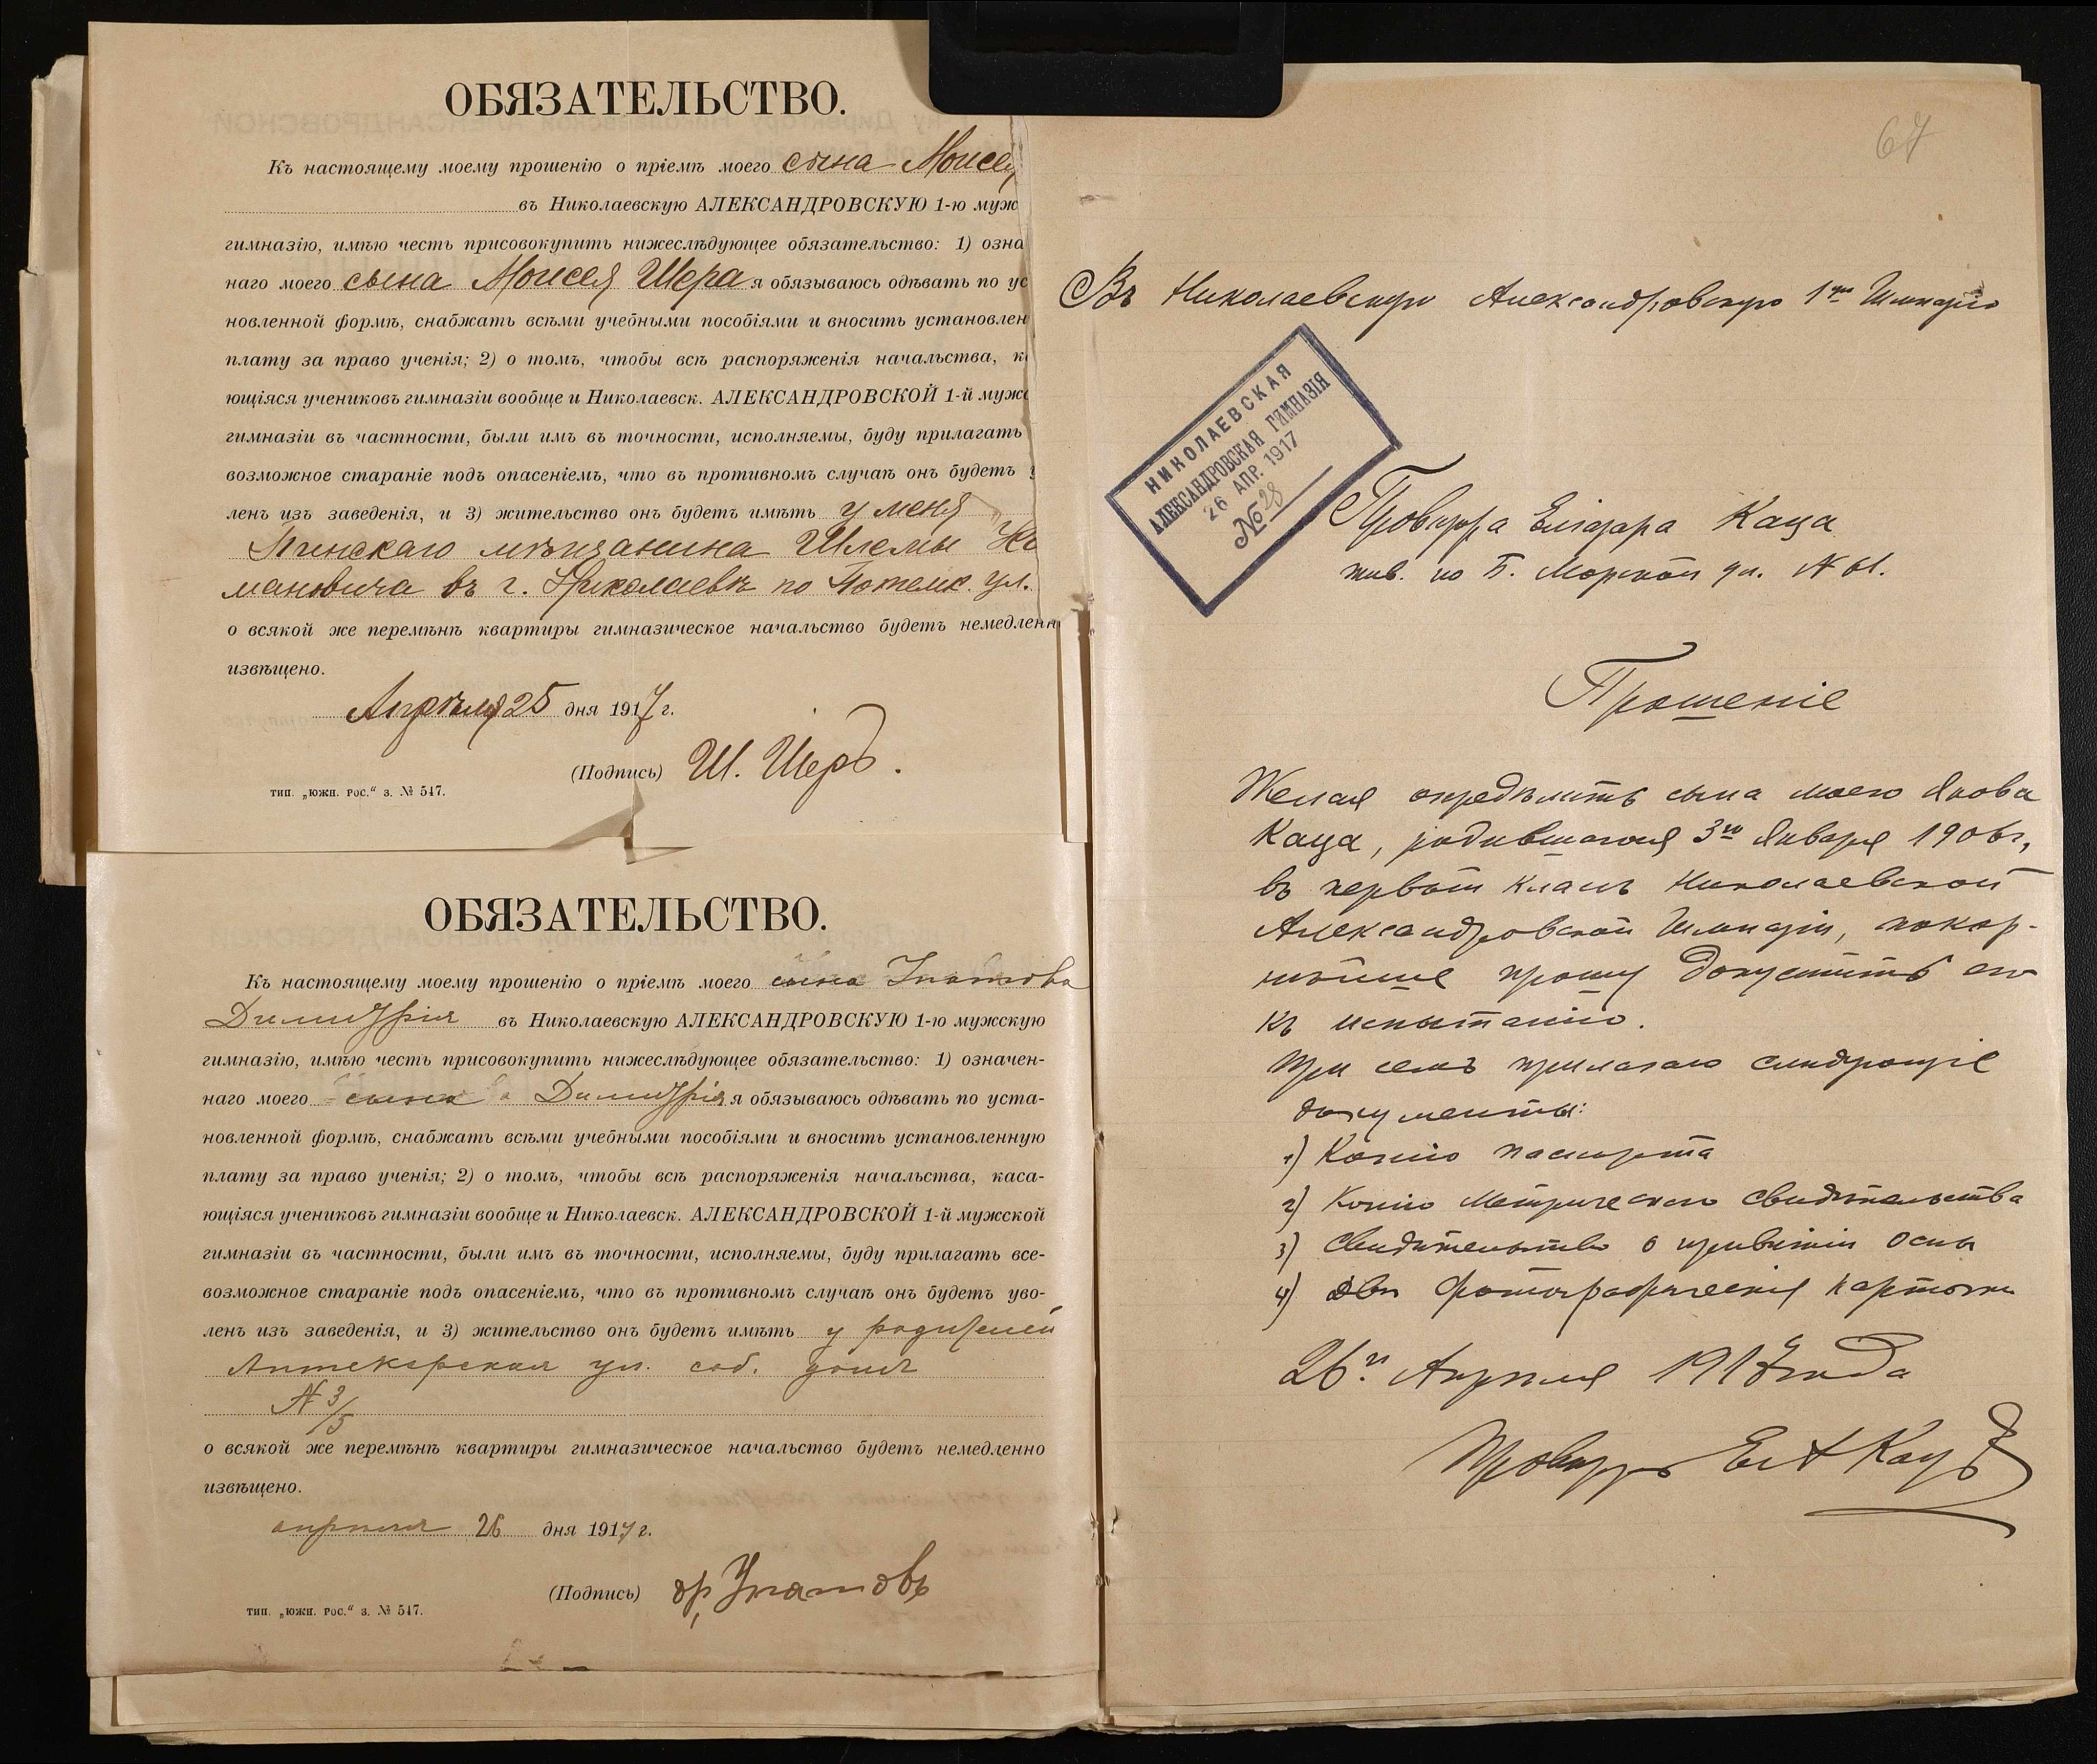 ОБЯЗАТЕЛЬСТВО.
Къ настоящему моему прошенію о пріемѣ моего сына Моисея
въ Николаевскую АЛЕКСАНДРОВСКУЮ 1-ю муж
гимназію, имѣю честь присовокупить нижеслѣдующее обязательство: 1) озна
наго моего сына Моисея Шера я обязываюсь одѣвать по ус
новленной формѣ, снабжать всѣми учебными пособіями и вносить установлен
плату за право ученія; 2) о томъ, чтобы всѣ распоряженія начальства, к
ющіяся учениковъ гимназіи вообще и Николаевск. АЛЕКСАНДРОВСКОЙ 1-й муж
гимназіи въ частности, были имъ въ точности, исполняемы, буду прилагать
возможное стараніе подъ опасеніемъ, что въ противномъ случаѣ онъ будетъ у
ленъ изъ заведенія, и 3) жительство онъ будетъ имѣть у меня
Пинскаго мѣщанина Шлемы
мановича въ г. Николаевѣ по Потемк. ул.
о всякой же перемѣнѣ квартиры гимназическое начальство будетъ немедленн
извѣщено.
Апрѣля 25 дня 1917 г.
(Подпись) Ш. Шеръ.
тип. „южн. рос.“ з. № 547.
ОБЯЗАТЕЛЬСТВО.
Къ настоящему моему прошенію о пріемѣ моего сына Игнатова
Димитрія въ Николаевскую АЛЕКСАНДРОВСКУЮ 1-ю мужскую
гимназію, имѣю честь присовокупить нижеслѣдующее обязательство: 1) означен-
наго моего сына Димитрія я обязываюсь одѣвать по уста-
новленной формѣ, снабжать всѣми учебными пособіями и вносить установленную
плату за право ученія; 2) о томъ, чтобы всѣ распоряженія начальства, каса-
ющіяся учениковъ гимназіи вообще и Николаевск. АЛЕКСАНДРОВСКОЙ 1-й мужской
гимназіи въ частности, были имъ въ точности, исполняемы, буду прилагать все-
возможное стараніе подъ опасеніемъ, что въ противномъ случаѣ онъ будетъ уво-
ленъ изъ заведенія, и 3) жительство онъ будетъ имѣть у родителей
Аптекарская ул. соб. домъ
N 3/5
о всякой же перемѣнѣ квартиры гимназическое начальство будетъ немедленно
извѣщено.
апрѣля 26 дня 1917 г.
(Подпись)
тип. „южн. рос.“ з. № 547.
67
Въ Николаевскую Александровскую 1ую Гимназію
НИКОЛАЕВСКАЯ
АЛЕКСАНДРОВСКАЯ ГИМНАЗІЯ
26 АПР. 1917
№ 28
Провизора Елiазара Каца
жив. по Б. Морской ул. N 61.
Прошеніе
Желая опредѣлить сына моего Якова
Каца, родившагося 3го Января 1906 г,
въ первый классъ Николаевской
Александровской Гимназіи, покор-
нѣйше прошу допустить его
къ испытанію.
При семъ прилагаю слѣдующіе
документы:
1) Копію паспорта
2) Копію Метрическаго свидѣтельства
3) Свидѣтельство о привитіи оспы
4) двѣ фотографическія карточки
26го Апрѣля 1917 года
Провизоръ Ел Кацъ